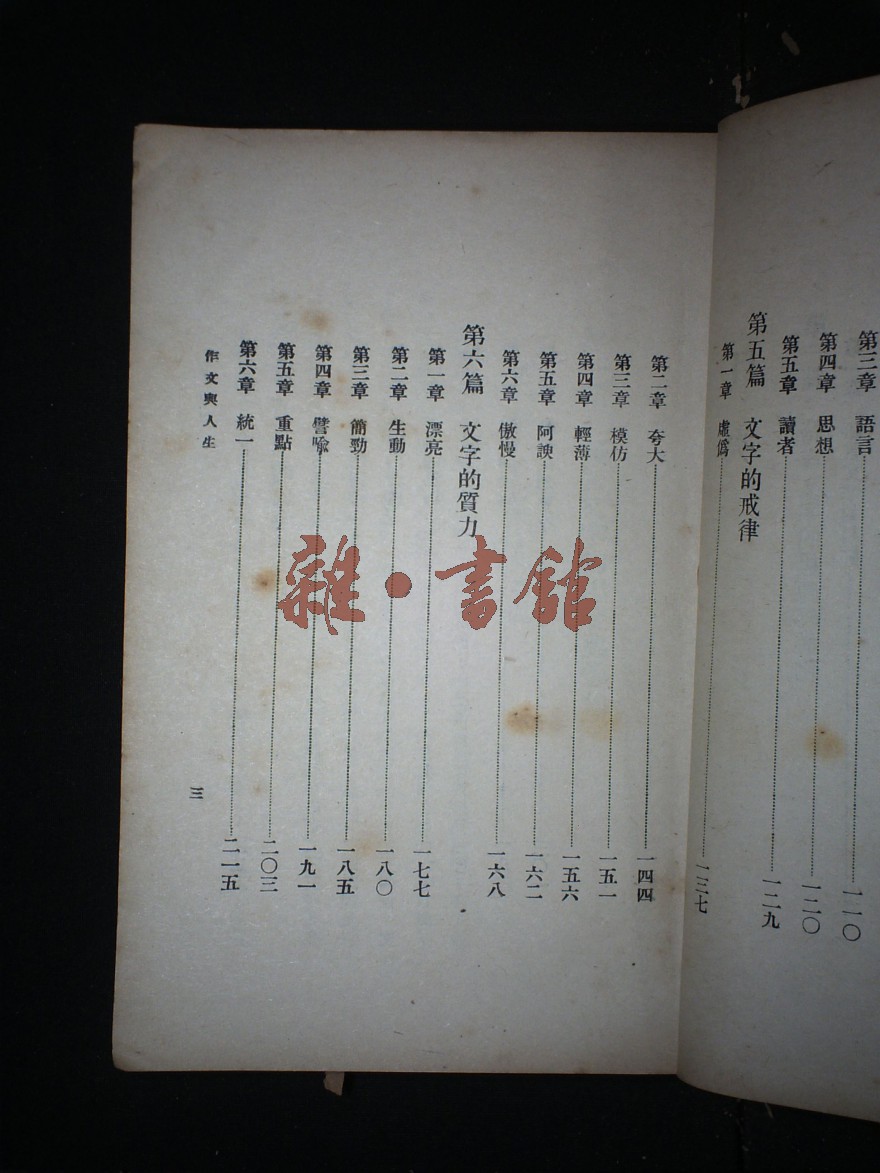 第三章　語言……一一〇
第四章　思想……一二〇
第五章　讀者……一二九
第五篇　文字的戒律
第一章　虛僞……一三七
第二章　夸大……一四四
第三章　模仿……一五一
第四章　輕薄……一五六
第五章　阿諛……一六二
第六章　傲慢……一六八
第六篇　文字的質力
第一章　漂亮……一七七
第二章　生動……一八〇
第三章　簡勁……一八五
第四章　譬喩……一九一
第五章　重點……二〇三
第六章　統一……二一五
作文與人生
三
雜·書館